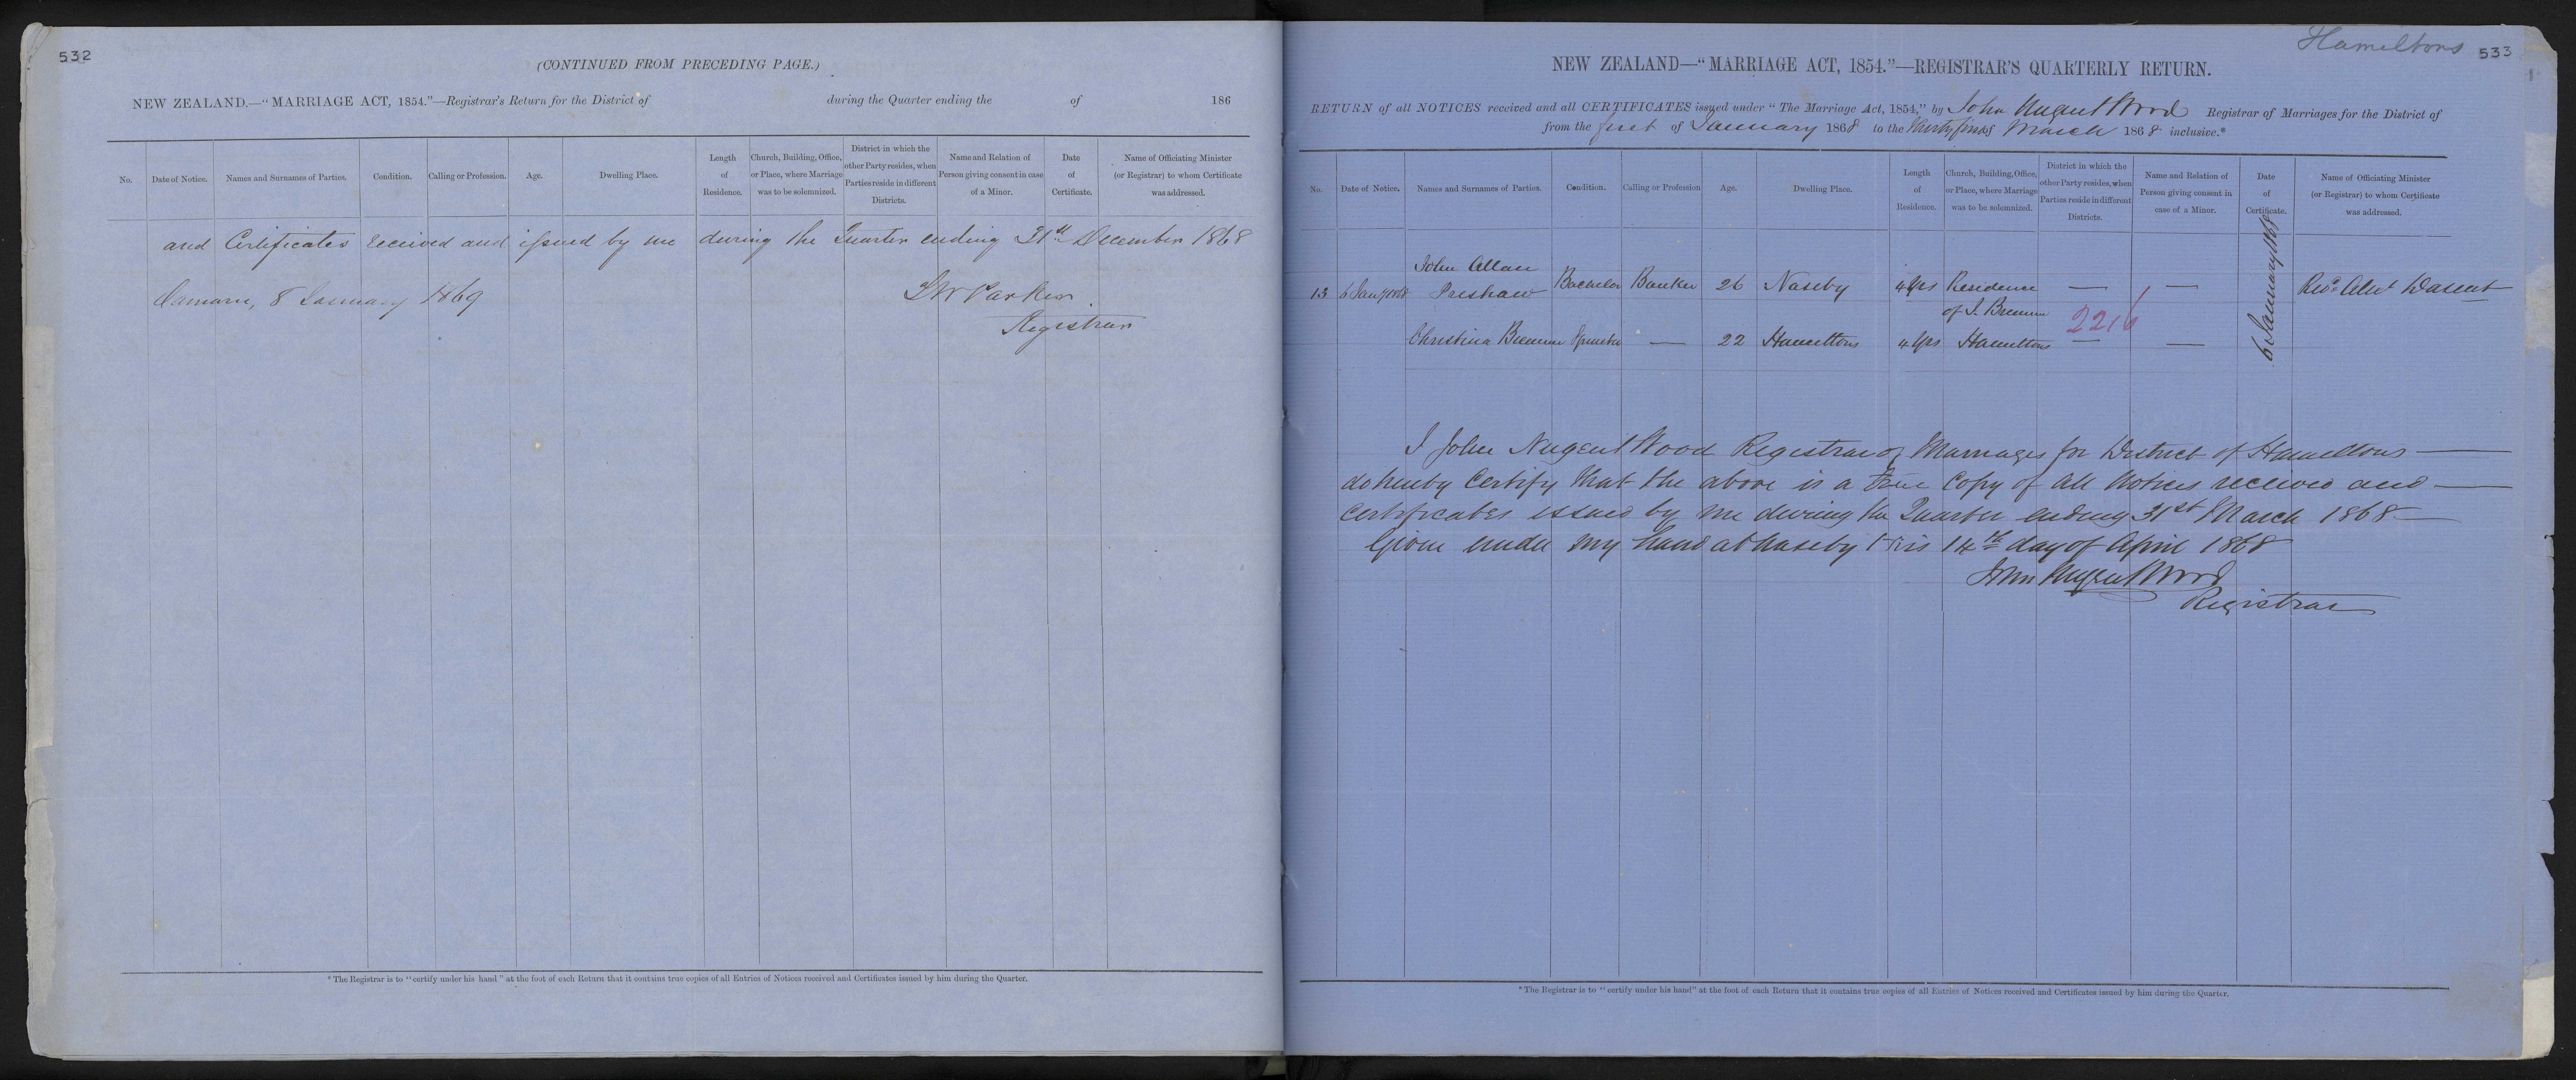 532
(CONTINUED FROM PRECEDING PAGE.)
NEW ZEALAND.—"MARRIAGE ACT, 1854."—Registrar's Return for the District of during the Quarter ending the of 186
No. Date of Notice. Names and Surnames of Parties. Condition. Calling or Profession. Age. Dwelling Place. Length of Residence. Church, Building, Office, or Place, where Marriage was to be solemnized. District in which the other Party resides, when Parties reside in different Districts. Name and Relation of Person giving consent in case of a Minor. Date of Certificate. Name of Officiating Minister (or Registrar) to whom Certificate was addressed.
and Certificates received and issued by me during the Quarter ending 31st December 1868
Oamaru, 8 January 1869
Parker.
Registrar
* The Registrar is to "certify under his hand" at the foot of each Return that it contains true copies of all Entries of Notices received and Certificates issued by him during the Quarter.
Hamiltons
533
NEW ZEALAND—"MARRIAGE ACT, 1854."—REGISTRAR'S QUARTERLY RETURN.
RETURN of all NOTICES received and all CERTIFICATES issued under "The Marriage Act, 1854," by John Nugent Wood Registrar of Marriages for the District of
from the first of January 1868 to the thirty first of March 1868 inclusive.*
No. Date of Notice. Names and Surnames of Parties. Condition. Calling or Profession Age. Dwelling Place. Length of Residence. Church, Building, Office, or Place, where Marriage was to be solemnized. District in which the other Party resides, when Parties reside in different Districts. Name and Relation of Person giving consent in case of a Minor. Date of Certificate. Name of Officiating Minister (or Registrar) to whom Certificate was addressed.
John Allan
13 6 Jany 1868 Preshaw Bachelor Banker 26 Naseby 4 yrs Residence — — 6 January 1868 Revd Alexr Dasent
of J. Bremner 2216
Christina Bremner Spinster — 22 Hamiltons 4 yrs Hamiltons — —
I John Nugent Wood Registrar of Marriages for District of Hamiltons —
do hereby Certify that the above is a True Copy of all Notices received and —
Certificates issued by me during the Quarter ending 31st March 1868 —
Given under my hand at Naseby this 14th day of April 1868
John Nugent Wood
Registrar
* The Registrar is to "certify under his hand" at the foot of each Return that it contains true copies of all Entries of Notices received and Certificates issued by him during the Quarter.